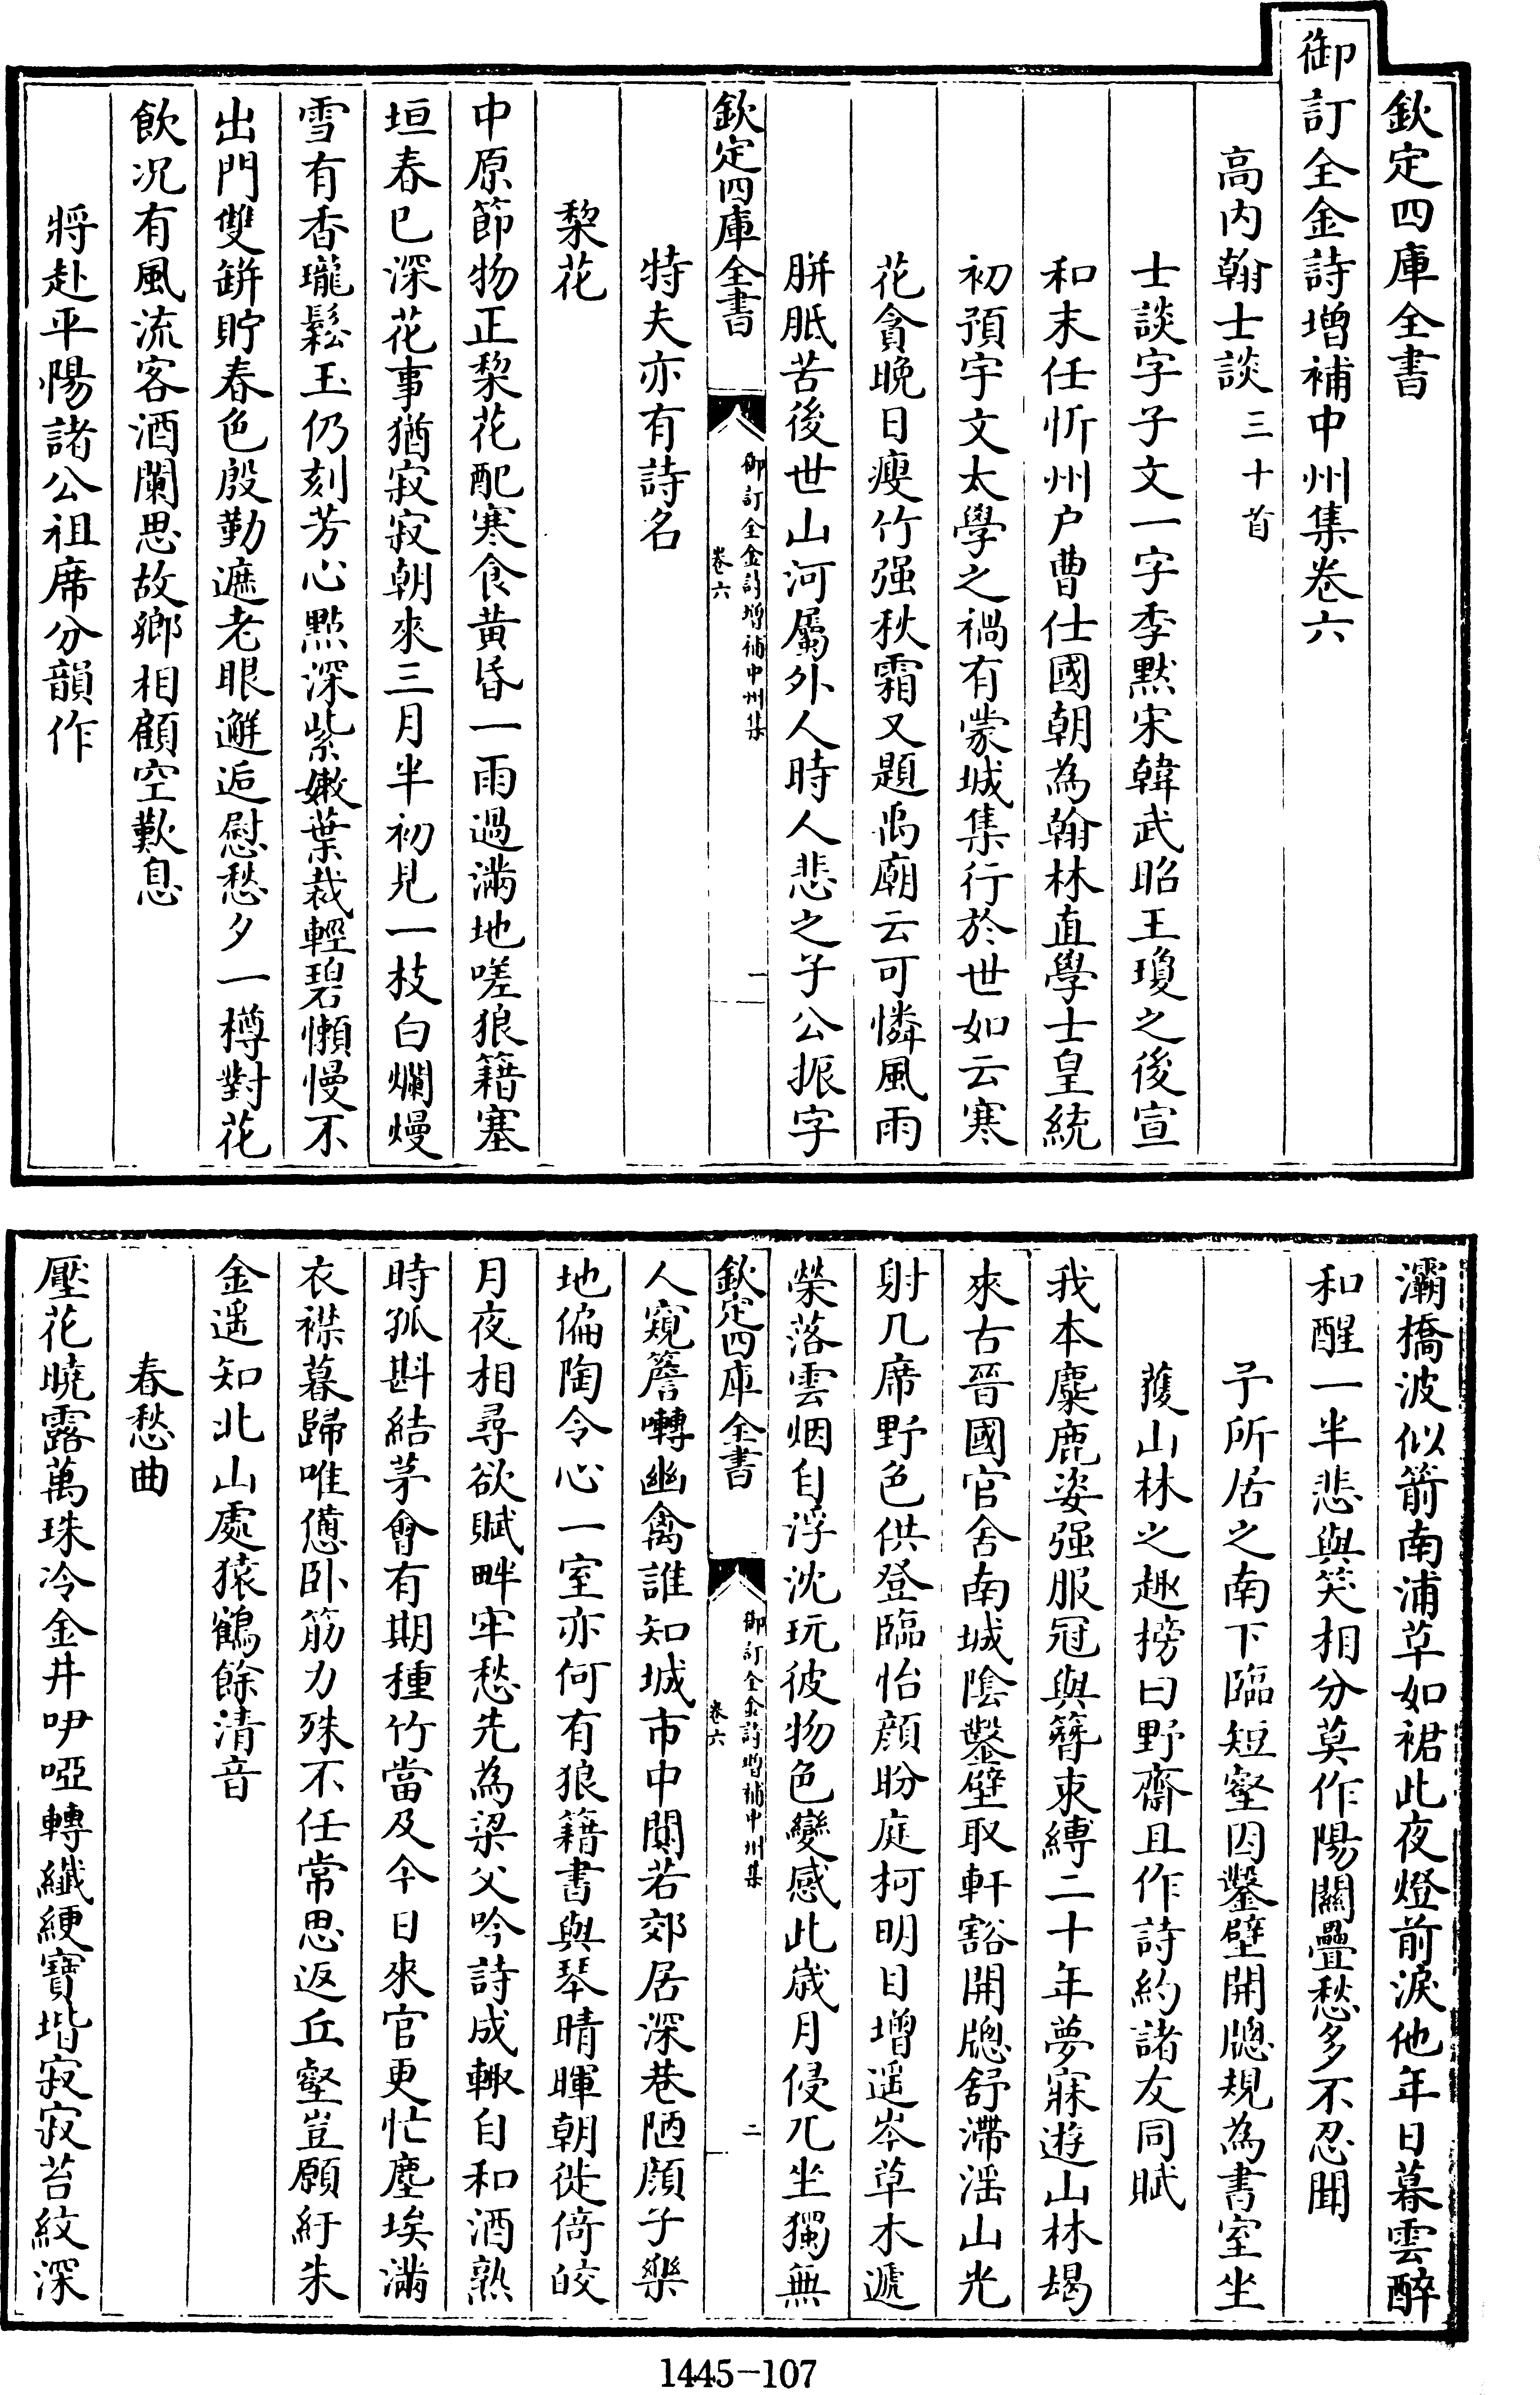 欽定四庫全書
御訂全金詩增補中州集卷六
高内翰士談三十首
士談字子文一字季默宋韓武昭王瓊之後宣
和末任忻州户曹仕國朝為翰林直學士皇統
初預宇文太學之禍有蒙城集行於世如云寒
花貪晚日瘦竹强秋霜又題禹廟云可憐風雨
胼胝苦後世山河屬外人時人悲之子公振字
欽定四庫全書
御訂全金詩增補中州集
卷六
一
特夫亦有詩名
棃花
中原節物正棃花配寒食黄昏一雨過滿地嗟狼籍塞
垣春已深花事猶寂寂朝來三月半初見一枝白爛熳
雪有香瓏鬆玉仍刻芳心點深紫嫩葉裁輕碧懶慢不
出門雙缾貯春色殷勤遮老眼邂逅慰愁夕一樽對花
飲况有風流客酒闌思故鄉相顧空歎息
將赴平陽諸公祖席分韻作
灞橋波似箭南浦草如裙此夜燈前淚他年日暮雲醉
和醒一半悲與笑相分莫作陽關疊愁多不忍聞
予所居之南下臨短壑因鑿壁開牕規為書室坐
獲山林之趣榜曰野齋且作詩約諸友同賦
我本麋鹿姿强服冠與簪束縛二十年夢寐遊山林朅
來古晉國官舍南城陰鑿壁取軒豁開牕舒滯滛山光
射几席野色供登臨怡顔盼庭柯明目增遥岑草木遞
榮落雲烟自浮沈玩彼物色變感此嵗月侵兀坐獨無
欽定四庫全書
御訂全金詩增補中州集
卷六
二
人窺簷囀幽禽誰知城市中闃若郊居深巷陋顔子樂
地偏陶令心一室亦何有狼籍書與琴晴暉朝徙倚皎
月夜相尋欲賦畔牢愁先為梁父吟詩成輙自和酒熟
時孤斟結茅會有期種竹當及今日來官更忙塵埃滿
衣襟暮歸唯憊卧筋力殊不任常思返丘壑豈願紆朱
金遥知北山處猿鶴餘清音
春愁曲
壓花曉露萬珠冷金井咿啞轉纖綆寶堦寂寂苔紋深
1445-107